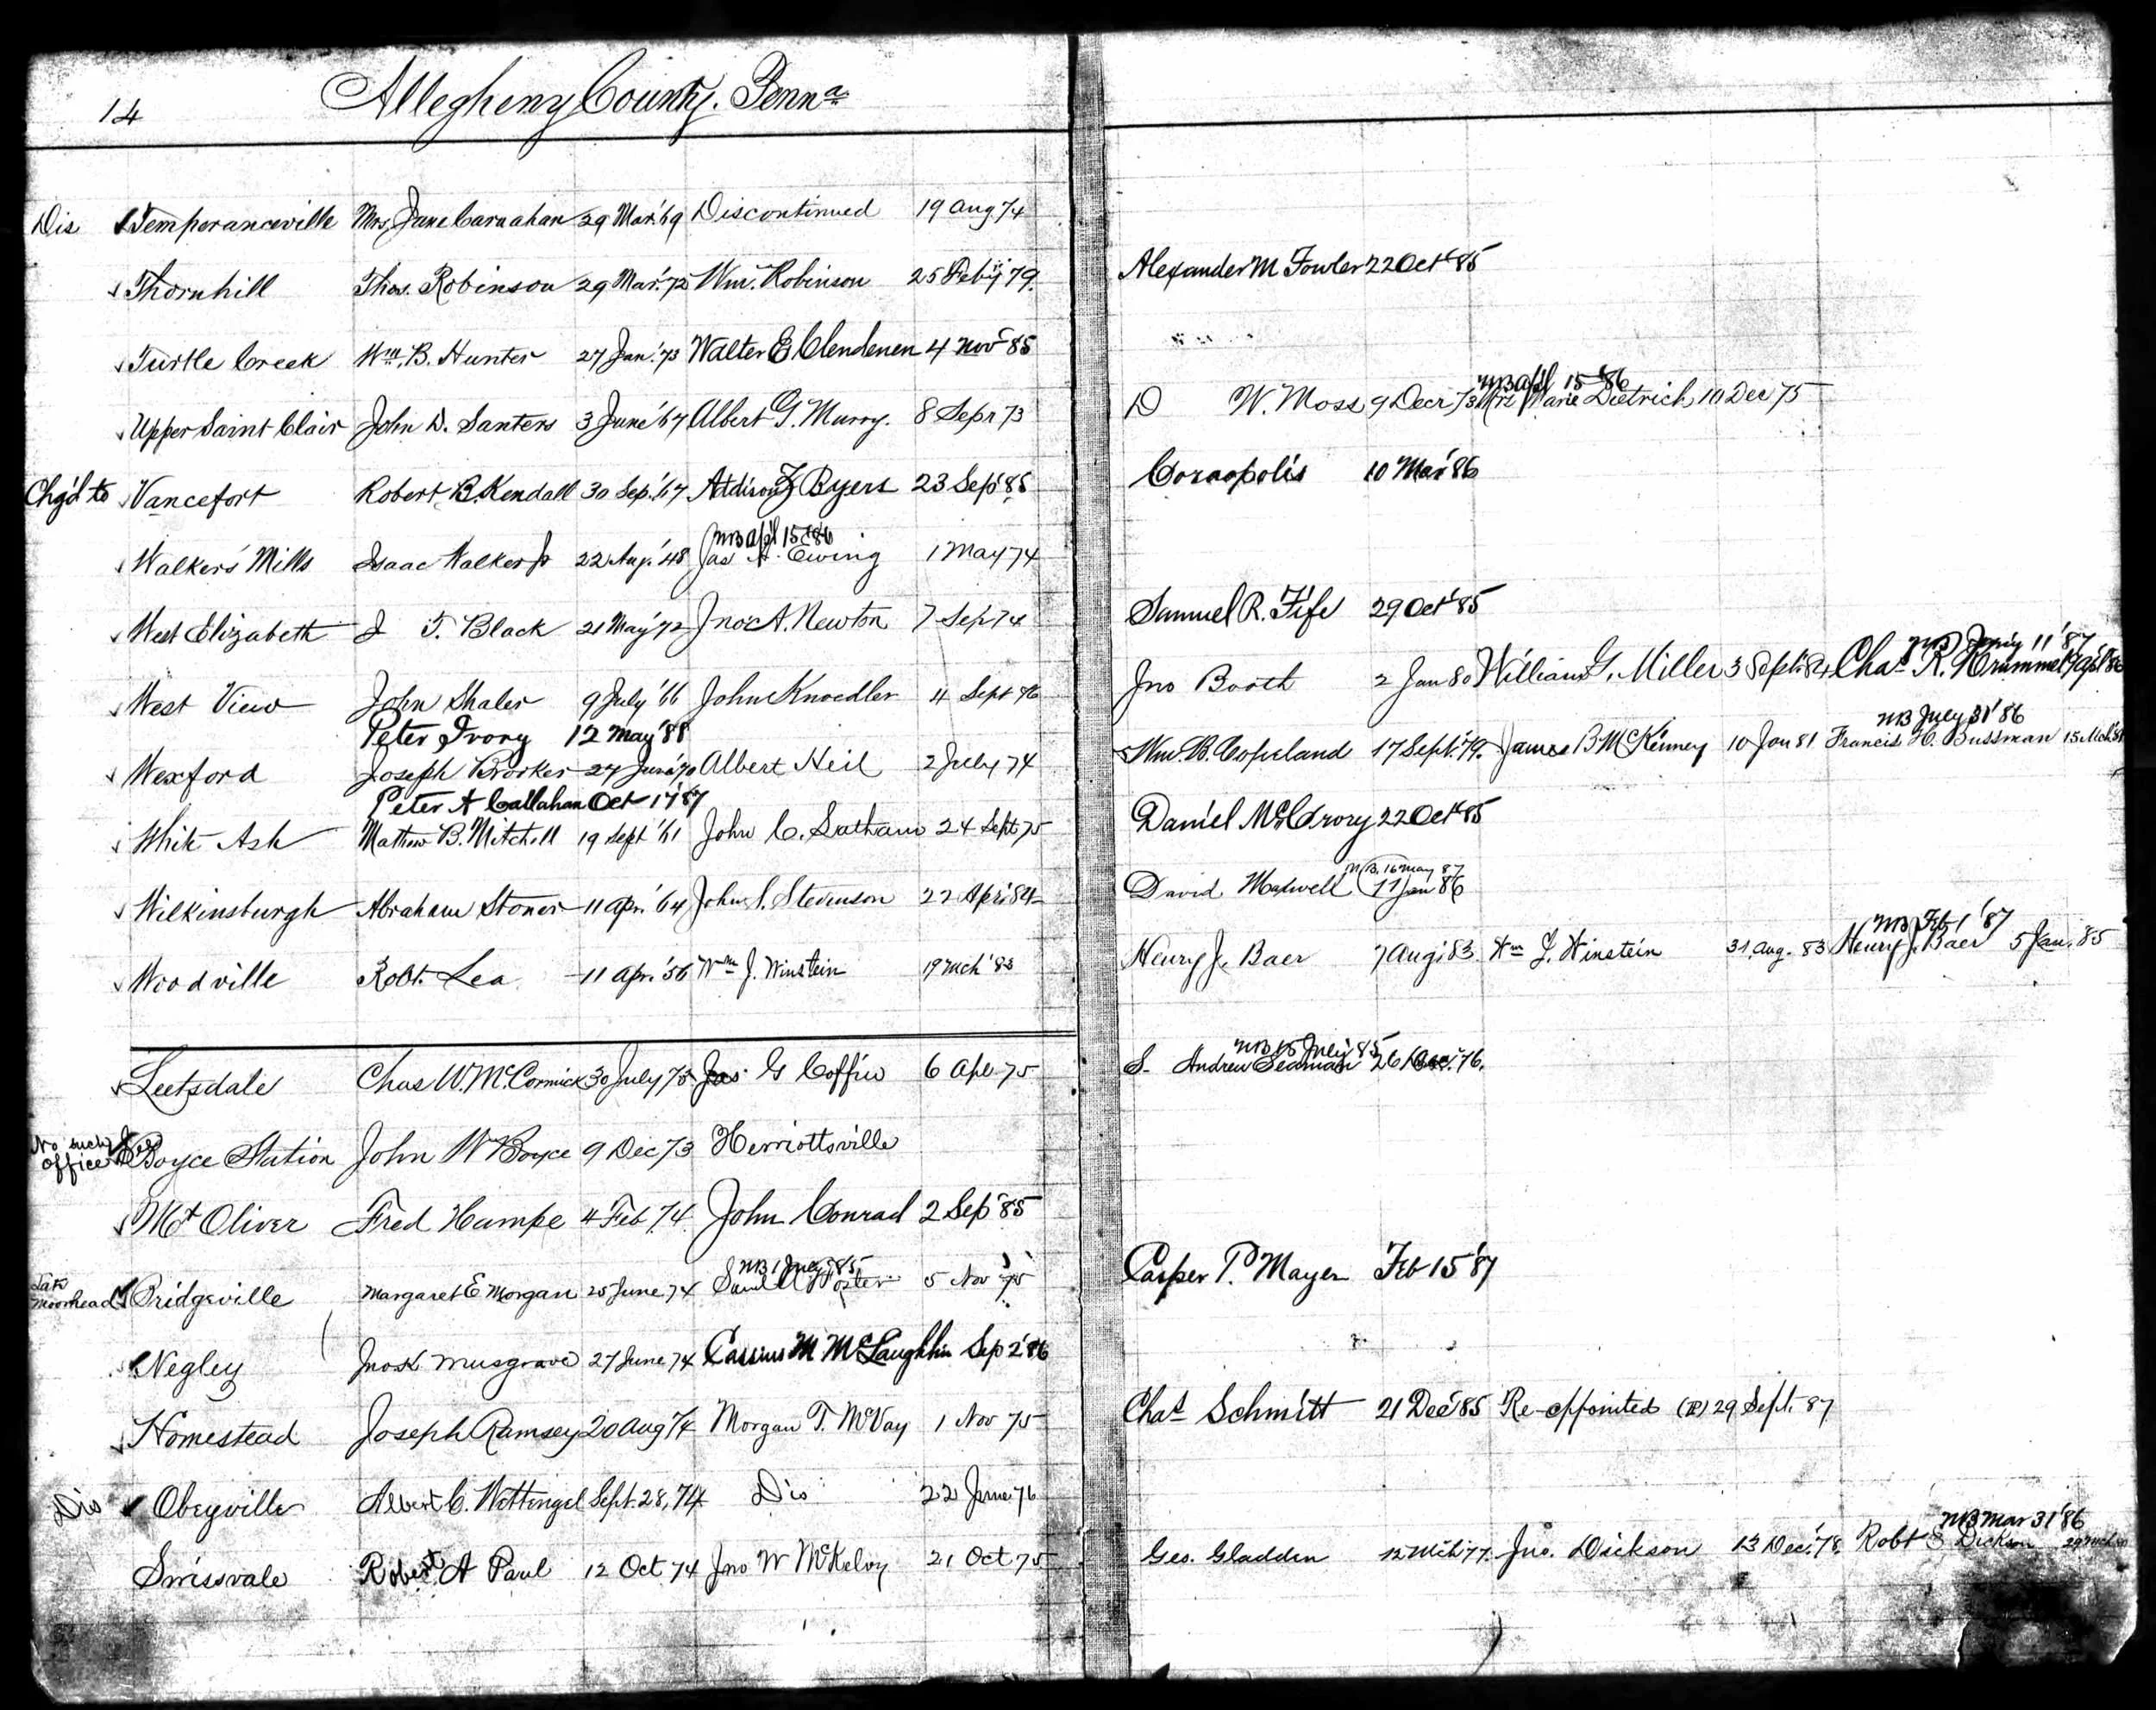 14
Allegheny County. Penna
Dis Temperanceville Mrs Jane Carnahan 29 Mar. '69 Discontinued 19 Aug 74
Thornhill Thos. Robinson 29 Mar. '72 Wm. Robinson 25 Feby 79. Alexander M Fowler 22 Oct '85
Turtle Creek Wm. B. Hunter 27 Jan. '73 Walter E Clendenen 4 Nov 85
NB Apl 15 '86
Upper Saint Clair John D. Santers 3 June '67 Albert G. Murry. 8 Sepr 73 D W. Moss 9 Decr 73 Mrs Marie Dietrich 10 Dec 75
Chg'd to Vancefort Robert B. Kendall 30 Sep. '67 Addison Byers 23 Sep '85 Coraopolis 10 Mar '86
NB Apl 15 '86
Walkers' Mills Isaac Walker Jr 22 Aug. '48 Jas A. Ewing 1 May 74
West Elizabeth J T. Black 21 May '72 Jno A. Newton 7 Sep 74 Samuel R. Fife 29 Oct '85
NB Jany 11 '87
West View John Shaler 9 July '66 John Knoedler 4 Sept 76 Jno Booth 2 Jan 80 William G. Miller 3 Sept. 84 Chas R.
Peter Ivory 12 May '88
NB July 31 '86
Wexford Joseph Brooker 27 June '70 Albert Neil 2 July 74 Wm. B. Copeland 17 Sept. '79. James B McKinney 10 Jan 81 Francis H. Bussman 15 Mch
Peter A Callahan Oct 17 '87
White Ash Mathew B. Mitchell 19 Sept '61 John C. 24 Sept 75 Daniel McCrory 22 Oct '85
NB, 16 May 87
Wilkinsburgh Abraham Stoner 11 Apr. '64 John S. Stevenson 22 Apr. '84 David Maxwell 11 Jan 86
NB Feb 1 '87
Woodville Robt. Lea 11 Apr. '56 Wm J. Winstein 19 Mch '83 Henry J. Baer 7 Aug. '83. Wm J. Winstein 31 Aug. 83 Henry J. Baer 5 Jan. 85
NB 15 July '85
Leetsdale Chas W. McCormick 30 July 73 Jas. G Coffin 6 Apl 75 S. Andrew Seaman 26 Dec. 76.
No such office Boyce Station John W Boyce 9 Dec 73 Herriottsville
Mt Oliver Fred Hampe 4 Feb 74 John Conrad 2 Sep '85
NB 1 July '85
Late Moorhead Bridgeville Margaret E Morgan 25 June 74 Saml Foster 5 Nov 75 Casper P. Mayer Feb 15 '87
Negley Jno Musgrave 27 June 74 Cassius M McLaughlin Sep 2 '86
Homestead Joseph Ramsey 20 Aug 74 Morgan T. McVay 1 Nov 75 Chas Schmitt 21 Dec '85 Re-appointed (P) 29 Sept. 87
Dis Obeyville Albert C. Wettengel Sept. 28, 74 Dis 22 June 76
NB Mar 31 '86
Swissvale Robert A Paul 12 Oct 74 Jno W McKelvy 21 Oct 75 Geo. Gladden 12 Mch 77. Jno. Dickson 13 Dec. '78. Robt S Dickson